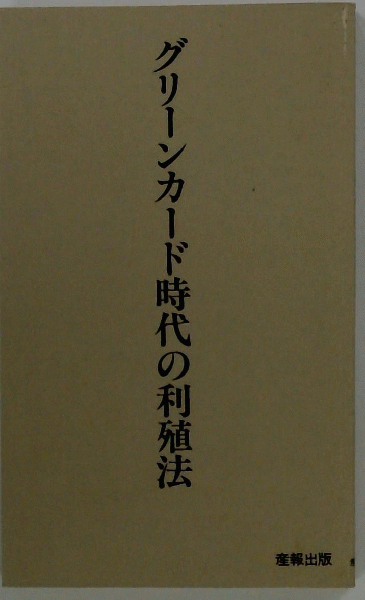 グリーンカード時代の利殖法
産報出版